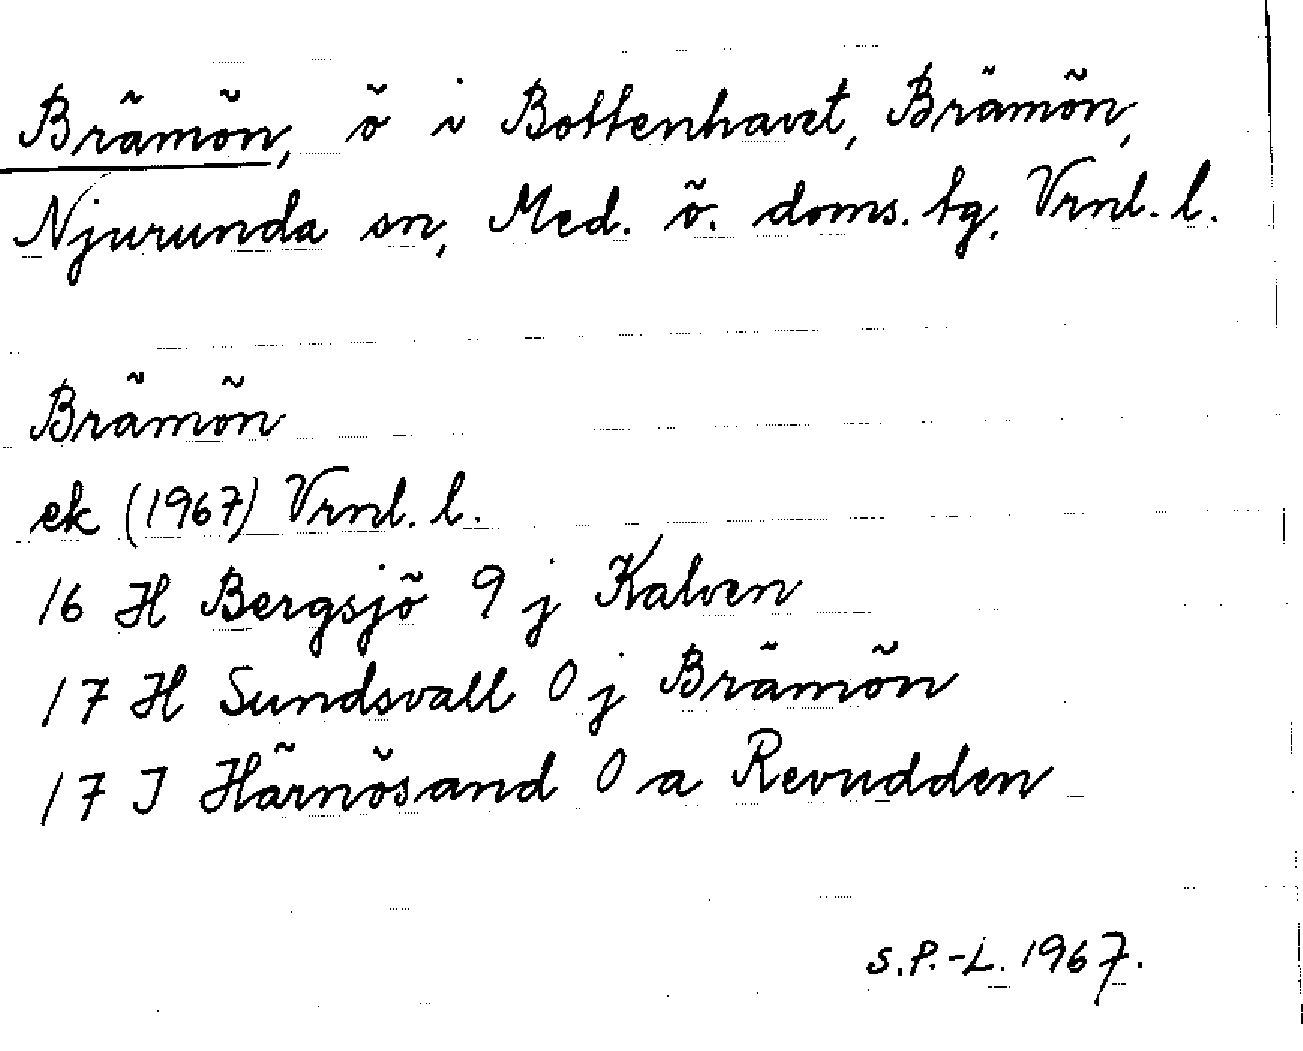 Brämön, ö i Bottenhavet, Brämön,
Njurunda sn, Med. ö. doms. tg, Vrnl. l.
Brämön
ek (1967) Vrnl. l.
16 H Bergsjö 9 j Kalven
17 H Sundsvall 0 j Brämön
17 I Härnösand 0 a Revudden
S.P.-L. 1967.